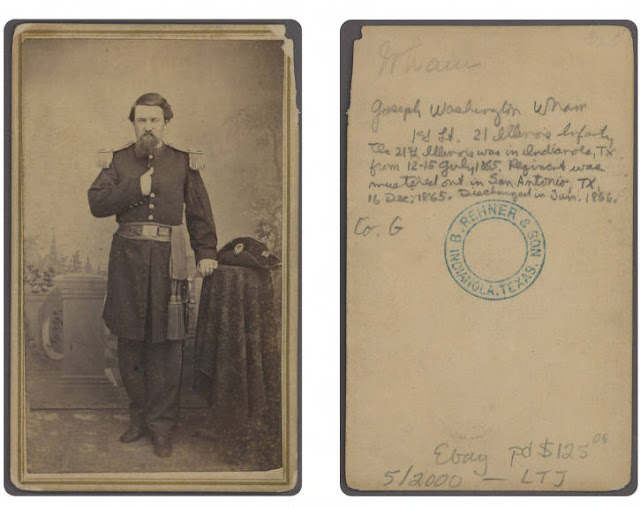 Wham
Joseph Washington Wham
1st Lt. 21 Illinois Infantry
The 21st Illinois was in Indianola, TX
from 12-15 July, 1865. Regiment was
mustered out in San Antonio, TX,
16 Dec, 1865. Discharged in Jan. 1866.
Co. G
B. REHNER & SON
INDIANOLA, TEXAS.
Ebay pd $125 00
5/2000 — LTJ